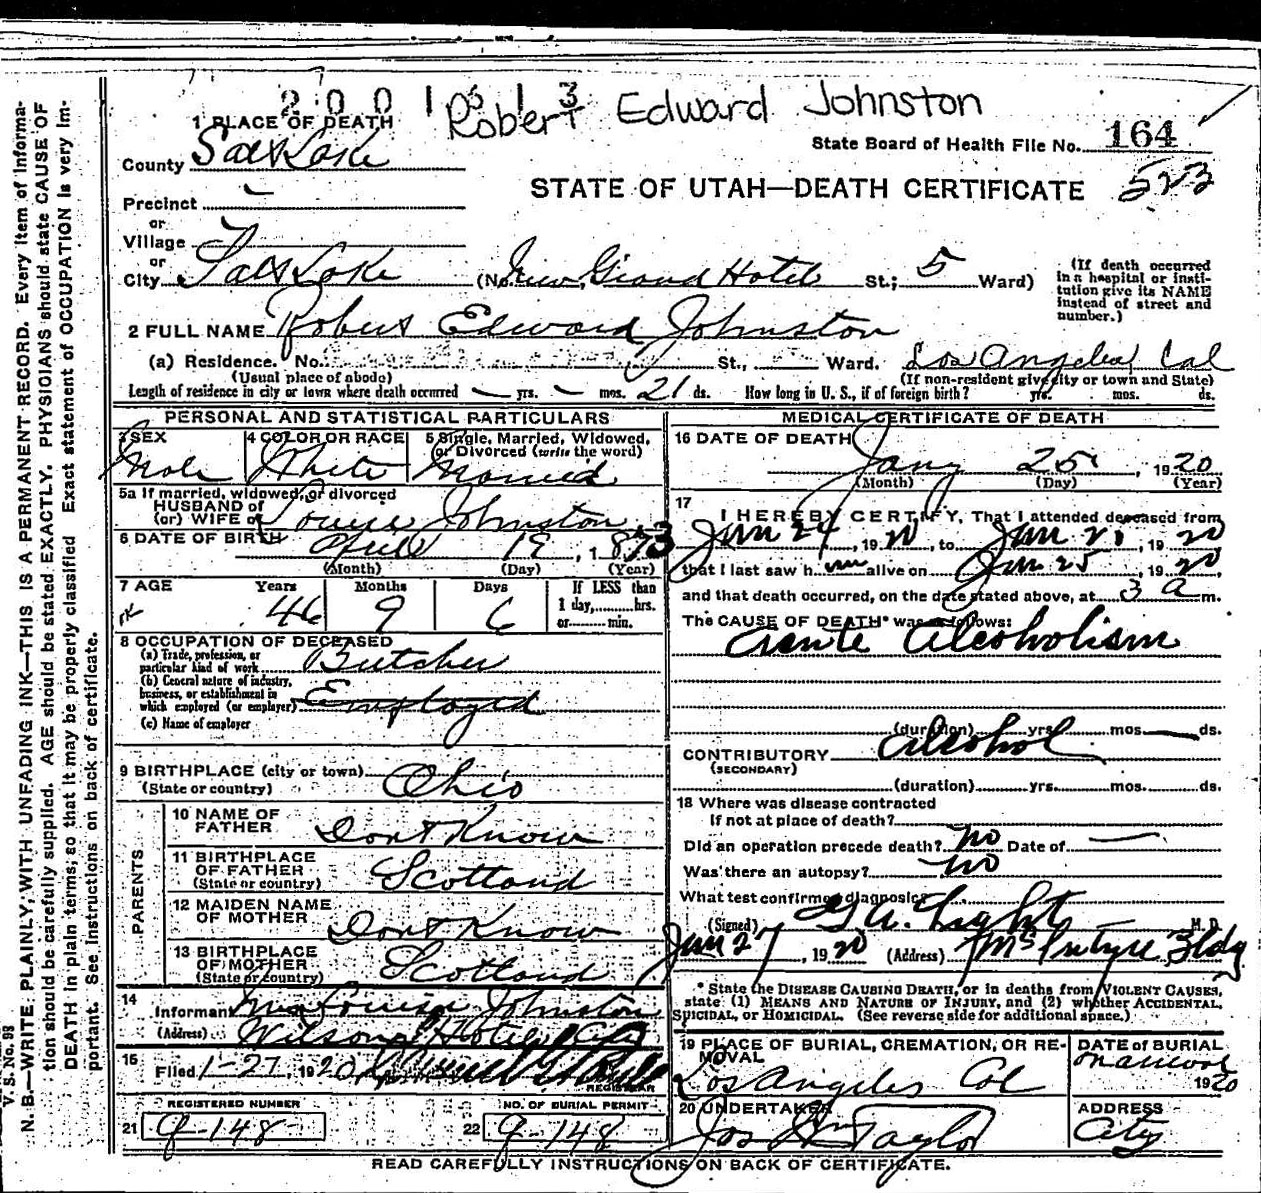 2001513 Robert Edward Johnston
1 PLACE OF DEATH
State Board of Health File No. 164
County Salt Lake
STATE OF UTAH—DEATH CERTIFICATE 523
Precinct
or
Village
or
City Salt Lake (No. New Grand Hotel St; 5 Ward)
(If death occurred in a hospital or institution give its NAME instead of street and number.)
2 FULL NAME Robert Edward Johnston
(a) Residence. No. St., Ward. Los Angeles, Cal
(Usual place of abode) (If non-resident give city or town and State)
Length of residence in city or town where death occurred — yrs. — mos. 21 ds. How long in U. S., if of foreign birth? yrs. mos. ds.
PERSONAL AND STATISTICAL PARTICULARS
3 SEX Male
4 COLOR OR RACE White
5 Single, Married, Widowed, or Divorced (write the word) Married
5a If married, widowed, or divorced
HUSBAND of
(or) WIFE of Louise Johnston
6 DATE OF BIRTH April 19, 1873
(Month) (Day) (Year)
7 AGE Years Months Days If LESS than
46 9 6 1 day, hrs.
or min.
8 OCCUPATION OF DECEASED
(a) Trade, profession, or particular kind of work Butcher
(b) General nature of industry, business, or establishment in which employed (or employer) Employed
(c) Name of employer
9 BIRTHPLACE (city or town)
(State or country) Ohio
PARENTS
10 NAME OF FATHER Dont Know
11 BIRTHPLACE OF FATHER (State or country) Scotland
12 MAIDEN NAME OF MOTHER Dont Know
13 BIRTHPLACE OF MOTHER (State or country) Scotland
14 Informant Mrs Louise Johnston
(Address) Wilson Hotel City
15 Filed 1-27, 1920
REGISTRAR
REGISTERED NUMBER
21 9-148
NO. OF BURIAL PERMIT
22 9-148
MEDICAL CERTIFICATE OF DEATH
16 DATE OF DEATH
Jany 25, 1920
(Month) (Day) (Year)
17 I HEREBY CERTIFY, That I attended deceased from
Jan 24, 1920, to Jan 25, 1920
that I last saw him alive on Jan 25, 1920,
and that death occurred, on the date stated above, at 3 a m.
The CAUSE OF DEATH* was as follows:
Acute Alcoholism
(duration) yrs. mos. — ds.
CONTRIBUTORY Alcohol
(SECONDARY)
(duration) yrs. mos. ds.
18 Where was disease contracted
If not at place of death?
Did an operation precede death? No Date of —
Was there an autopsy? No
What test confirmed diagnosis?
(Signed) G. A. Light M. D.
Jan 27, 1920 (Address) McIntyre Bldg
* State the DISEASE CAUSING DEATH, or in deaths from VIOLENT CAUSES, state (1) MEANS AND NATURE OF INJURY, and (2) whether ACCIDENTAL, SUICIDAL, or HOMICIDAL. (See reverse side for additional space.)
19 PLACE OF BURIAL, CREMATION, OR REMOVAL
Los Angeles Cal
DATE of BURIAL
1920
20 UNDERTAKER
Jos Wm Taylor
ADDRESS
City
READ CAREFULLY INSTRUCTIONS ON BACK OF CERTIFICATE.
V. S. No. 98
N. B.—WRITE PLAINLY, WITH UNFADING INK—THIS IS A PERMANENT RECORD. Every item of information should be carefully supplied. AGE should be stated EXACTLY. PHYSICIANS should state CAUSE OF DEATH in plain terms, so that it may be properly classified. Exact statement of OCCUPATION is very important. See instructions on back of certificate.